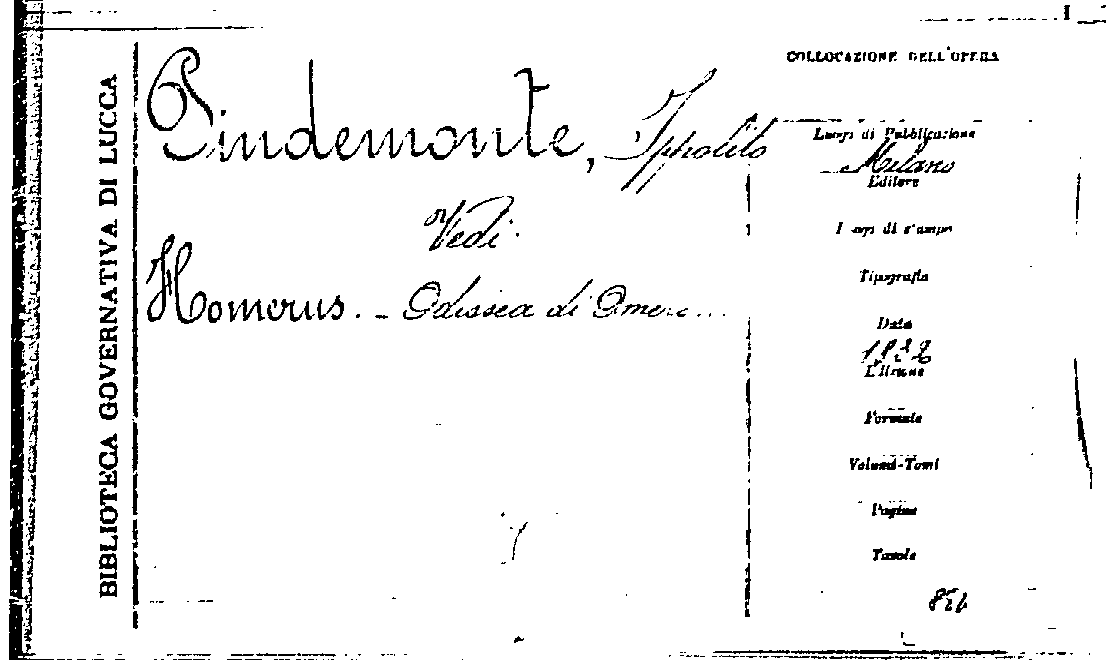 BIBLIOTECA GOVERNATIVA DI LUCCA
Pindemonte, Ippolito
Vedi
Homerus. - Odissea di Omero...
COLLOCAZIONE DELL'OPERA
Luogo di Pubblicazione
Milano
Editore
Luogo di stampa
Tipografia
Data
Edizione
Formato
Volumi-Tomi
Pagine
Tavole